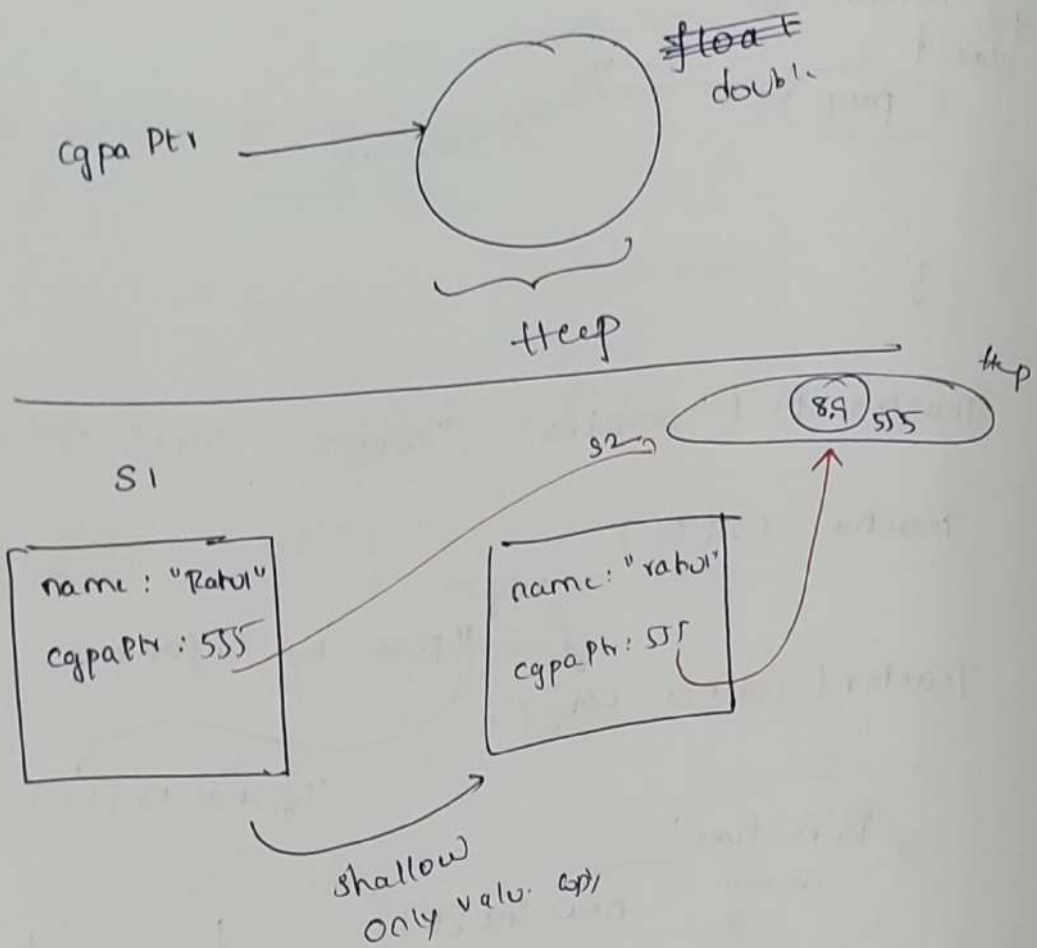 float
doubl.
cgpa Ptr
Heep
Hep
8.9
555
S2
S1
name: "Rahul"
cgpaPtr: 555
name: "rahul"
cgpaPtr: 555
shallow
only valu. copy